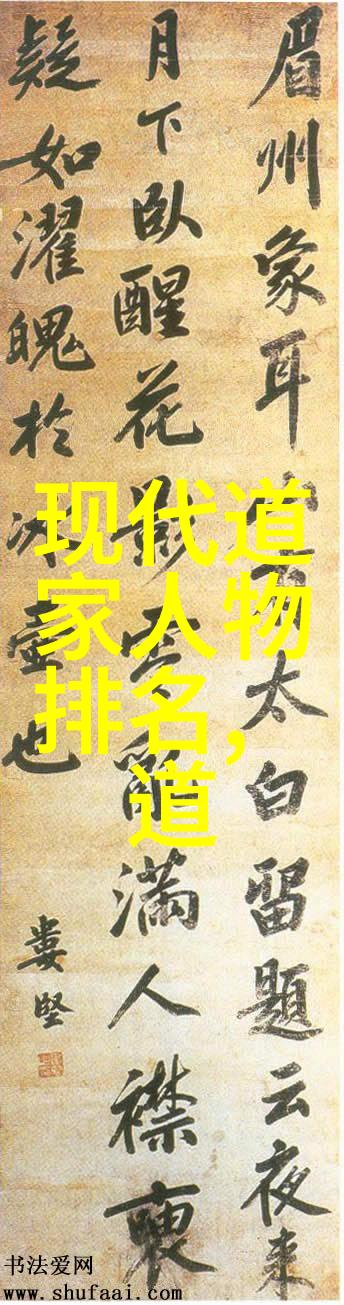 眉州象耳太白留題云夜来
月下臥醒花影零亂滿人襟
疑如濯魄於冰壺也
婁堅
现代道
家人物
排名,
道
书法爱网
www.shufaai.com